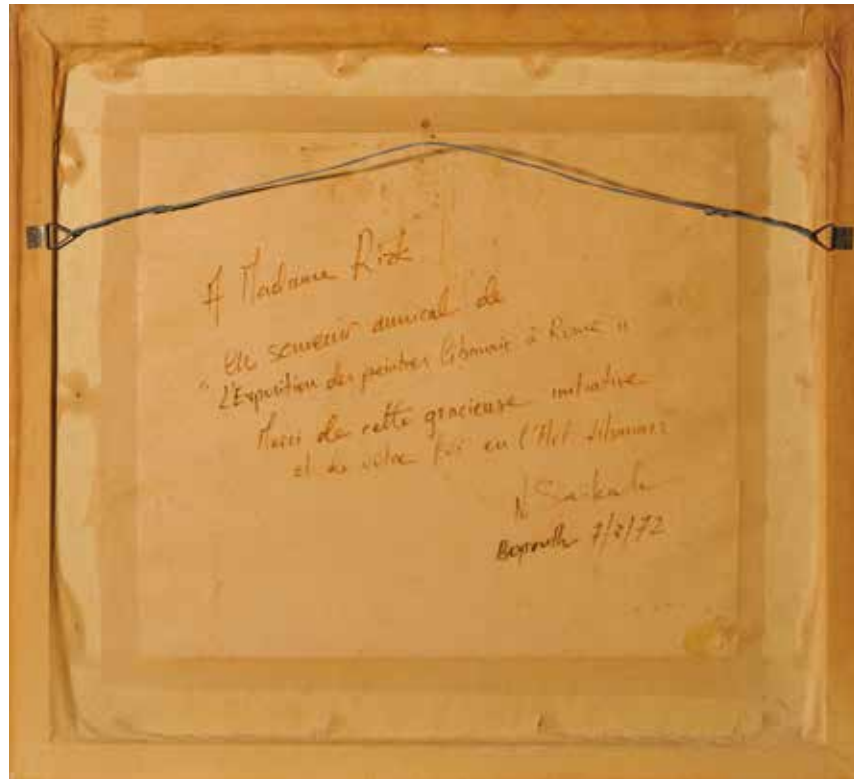 A Madame Risk
Un souvenir amical de
"L'Exposition des peintres libanais à Rome"
Merci de cette gracieuse initiative
et de votre foi en l'Art libanais
N Saikali
Beyrouth 7/2/72